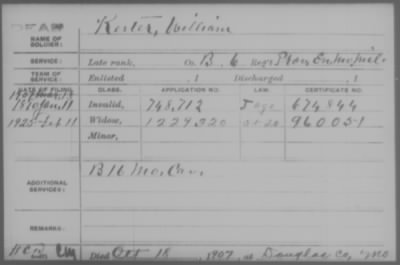 DEAD
NAME OF SOLDIER: Kester, William
SERVICE: Late rank, Co. B. 6 Reg't Prov. En. Mo. Mil.
TERM OF SERVICE: Enlisted , 1 Discharged , 1
DATE OF FILING. CLASS. APPLICATION NO. LAW. CERTIFICATE NO.
Invalid, 748,712 age 674,844
1925 Feb 11 Widow, 1229320 960051
Minor,
ADDITIONAL SERVICES: B 16 Mo. Cav.
REMARKS:
Died Oct 18, 1907, at Douglas Co, Mo